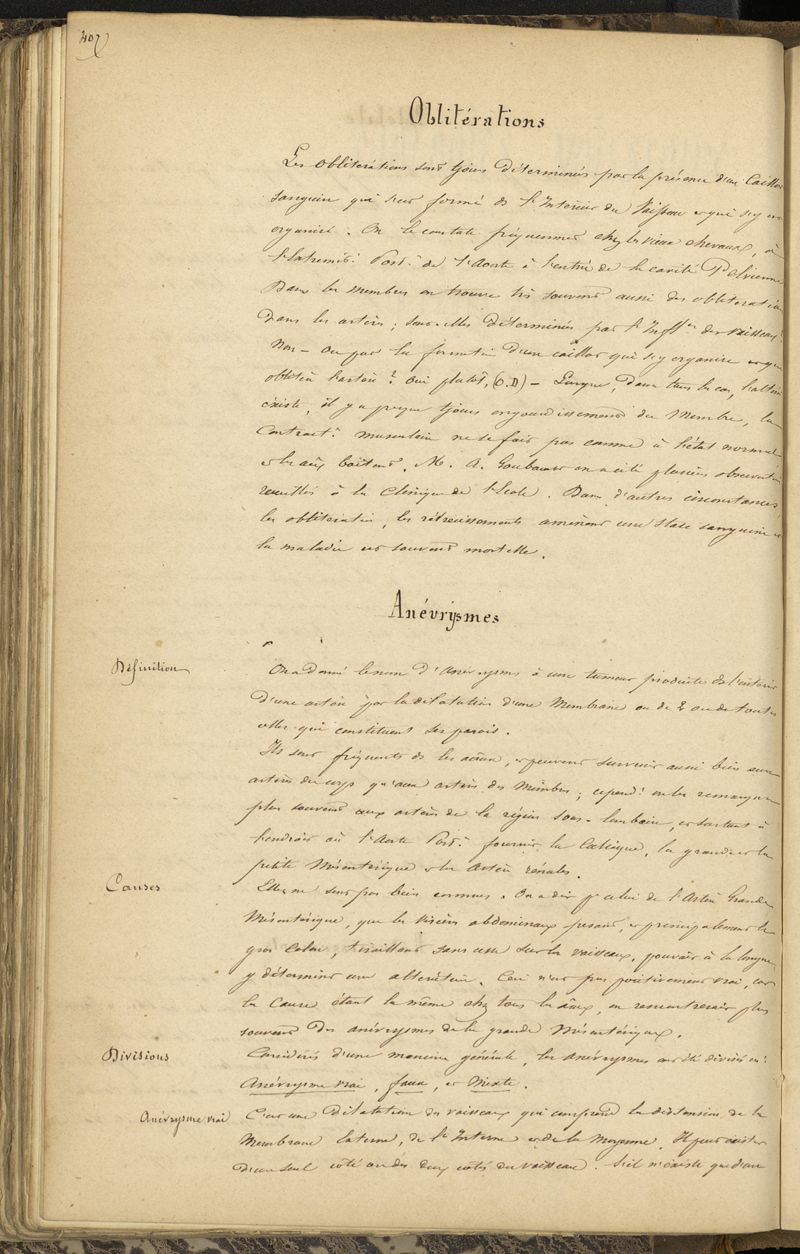 407
Oblitérations
Les oblitérations sont tjours déterminées par la présence d'un Caillot
sanguin qui s'est formé ds l'Intérieur du Vaisseau et qui s'y est
organisé. On le constate fréquemmt chez les vieux chevaux, à
l'Extrémité Postre de l'Aorte à l'entrée de la cavité Pelvienne
Dans les membres on trouve très souvent aussi des oblitérations
dans les artères; sont-elles déterminées par l'Infltn des vaisseaux?
Non — ou par la formation d'un caillot qui s'y organise et qui
oblitère l'artère? oui plutôt, (O.D) — Lorsque, dans tous les cas,
existe, il y a presque tjours engourdissement du Membre, la
Contractn musculaire ne se fait pas comme à l'état normal
et les aux boitent. M. A. Goubaux en a cité plusieurs observations
recueillies à la clinique de l'Ecole. Dans d'autres circonstances,
les oblitérations, les rétrécissements amènent une stase sanguine et
la maladie est souvent mortelle.
Anévrysmes
Définition
On a donné le nom d'Anévrysme à une tumeur produite ds l'intérieur
d'une artère par la dilatation d'une Membrane ou de 2 ou de toutes
celles qui constituent ses parois.
Ils sont fréquents ds les aux, et peuvent survenir aussi bien aux
artères du corps qu'aux artères des Membres; cependt on les remarque
plus souvent aux artères de la région sous-lombaire, et surtout à
l'endroit où l'Aorte Postre fournit la Cœliaque, la grande et la
petite Mésentérique et les Artères rénales.
Causes
Elles ne sont pas bien connues. On a dit pr celui de l'Artère Grande
Mésentérique, que les viscères abdominaux pesants, et principalement le
gros Colon, tiraillant sans cesse sur les vaisseaux, pouvait à la longue
y déterminer une altération. Ceci n'est pas positivement vrai, car
la Cause étant la même chez tous les aux, on rencontrerait plus
souvent des anévrysmes de la grande Mésentérique.
Divisions
Considérés d'une manière générale, les anévrysmes ont été divisés en:
Anévrysme vrai, faux, et Mixte.
Anévrysme vrai
C'est une dilatation du vaisseau qui comprend la distension de la
Membrane Externe, de l'Interne et de la Moyenne. Il peut exister
d'un seul côté ou des deux côtés du vaisseau. S'il n'existe que d'un